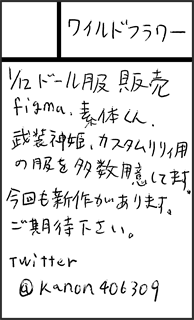 ワイルドフラワー
1/12ドール服販売
figma、素体くん、
武装神姫、カスタムリリィ用
の服を多数用意してます。
今回も新作があります。
ご期待下さい。
Twitter
@kanon406309